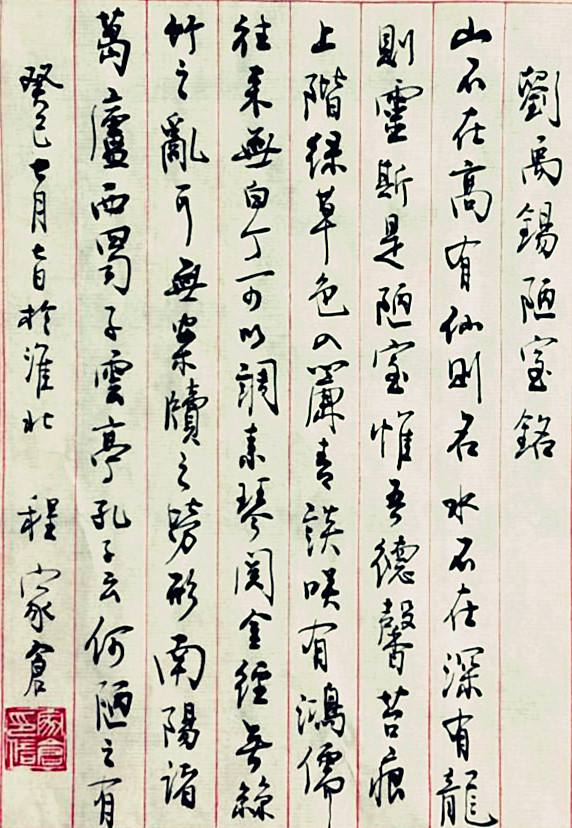 劉禹錫陋室銘
山不在高有仙則名水不在深有龍
則靈斯是陋室惟吾德馨苔痕
上階綠草色入簾青談咲有鴻儒
往来無白丁可以調素琴閱金經无絲
竹之亂耳無案牘之勞形南陽諸
葛廬西蜀子雲亭孔子云何陋之有
癸巳七月七日於淮北 程家倉
家倉印信